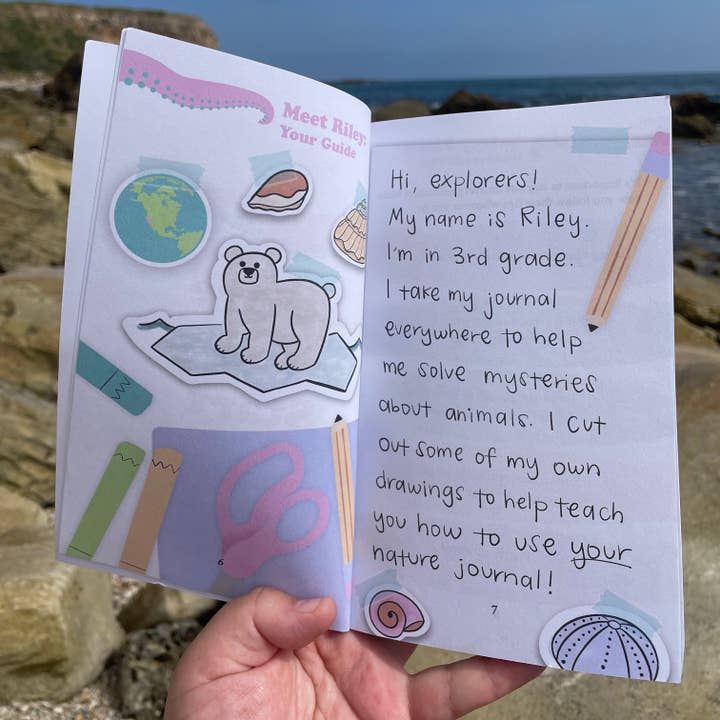 Meet Riley:
Your Guide
6
Hi, explorers!
My name is Riley.
I'm in 3rd grade.
I take my journal
everywhere to help
me solve mysteries
about animals. I cut
out some of my own
drawings to help teach
you how to use your
nature journal!
7